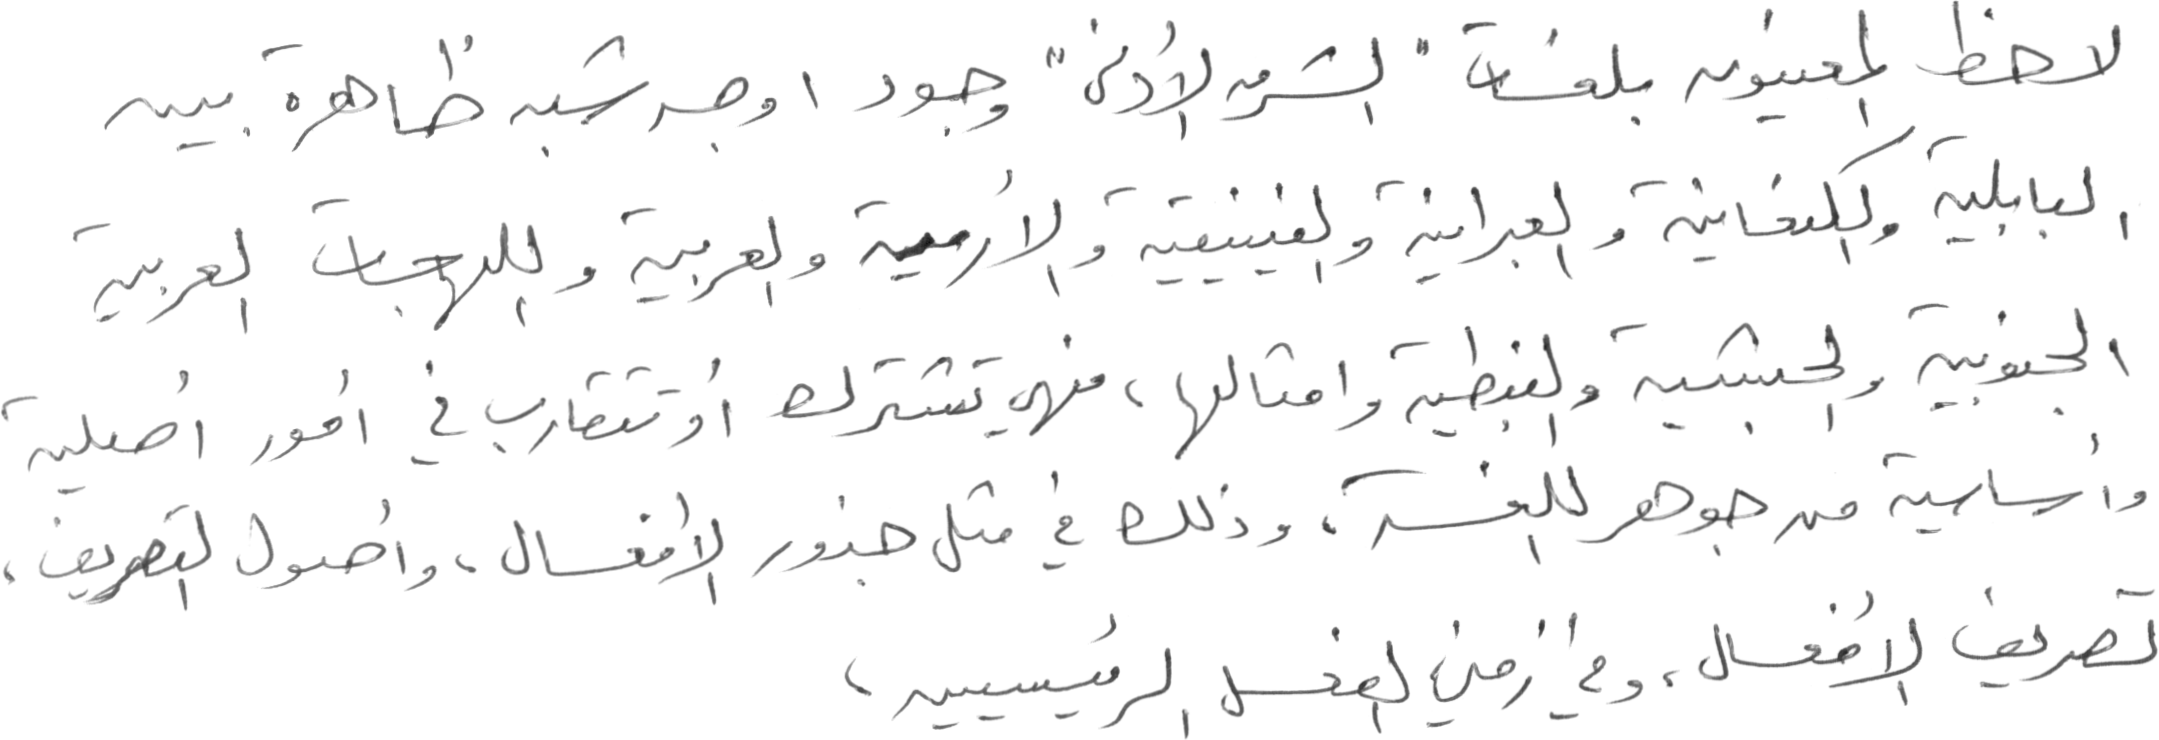 لاحظ المعنيون بلغات "الشرق الأدنى" وجود اوجه شبه ظاهرة بين
البابلية والكنعانية والعبرانية والفينيقية والأرمية والعربية واللهجات العربية
الجنوبية والحبشية والنبطية وامثالها، فهي تشترك أو تتقارب في امور أصلية
وأساسية من جوهر اللغة، وذلك في مثل جذور الأفعال، وأصول التصريف،
تصريف الأفعال، وفي زمني الفعل الرئيسيين،